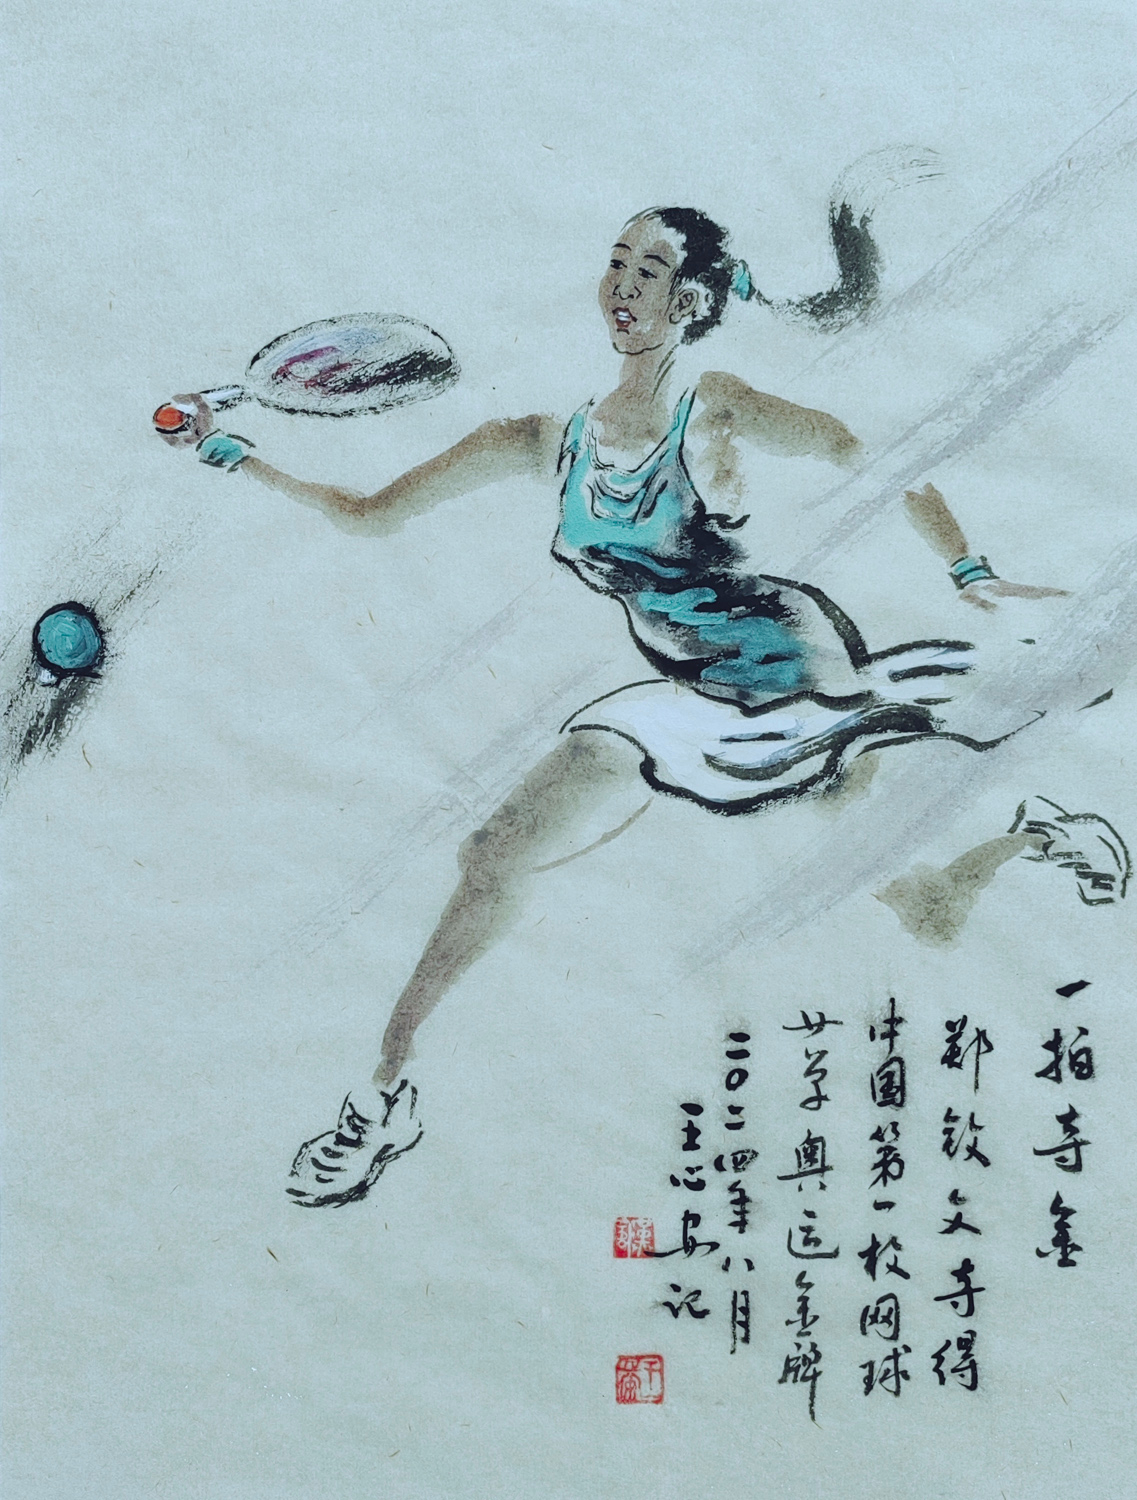 一拍夺金
郑钦文夺得
中国第一枚网球
女单奥运金牌
二〇二四年八月
王心安记